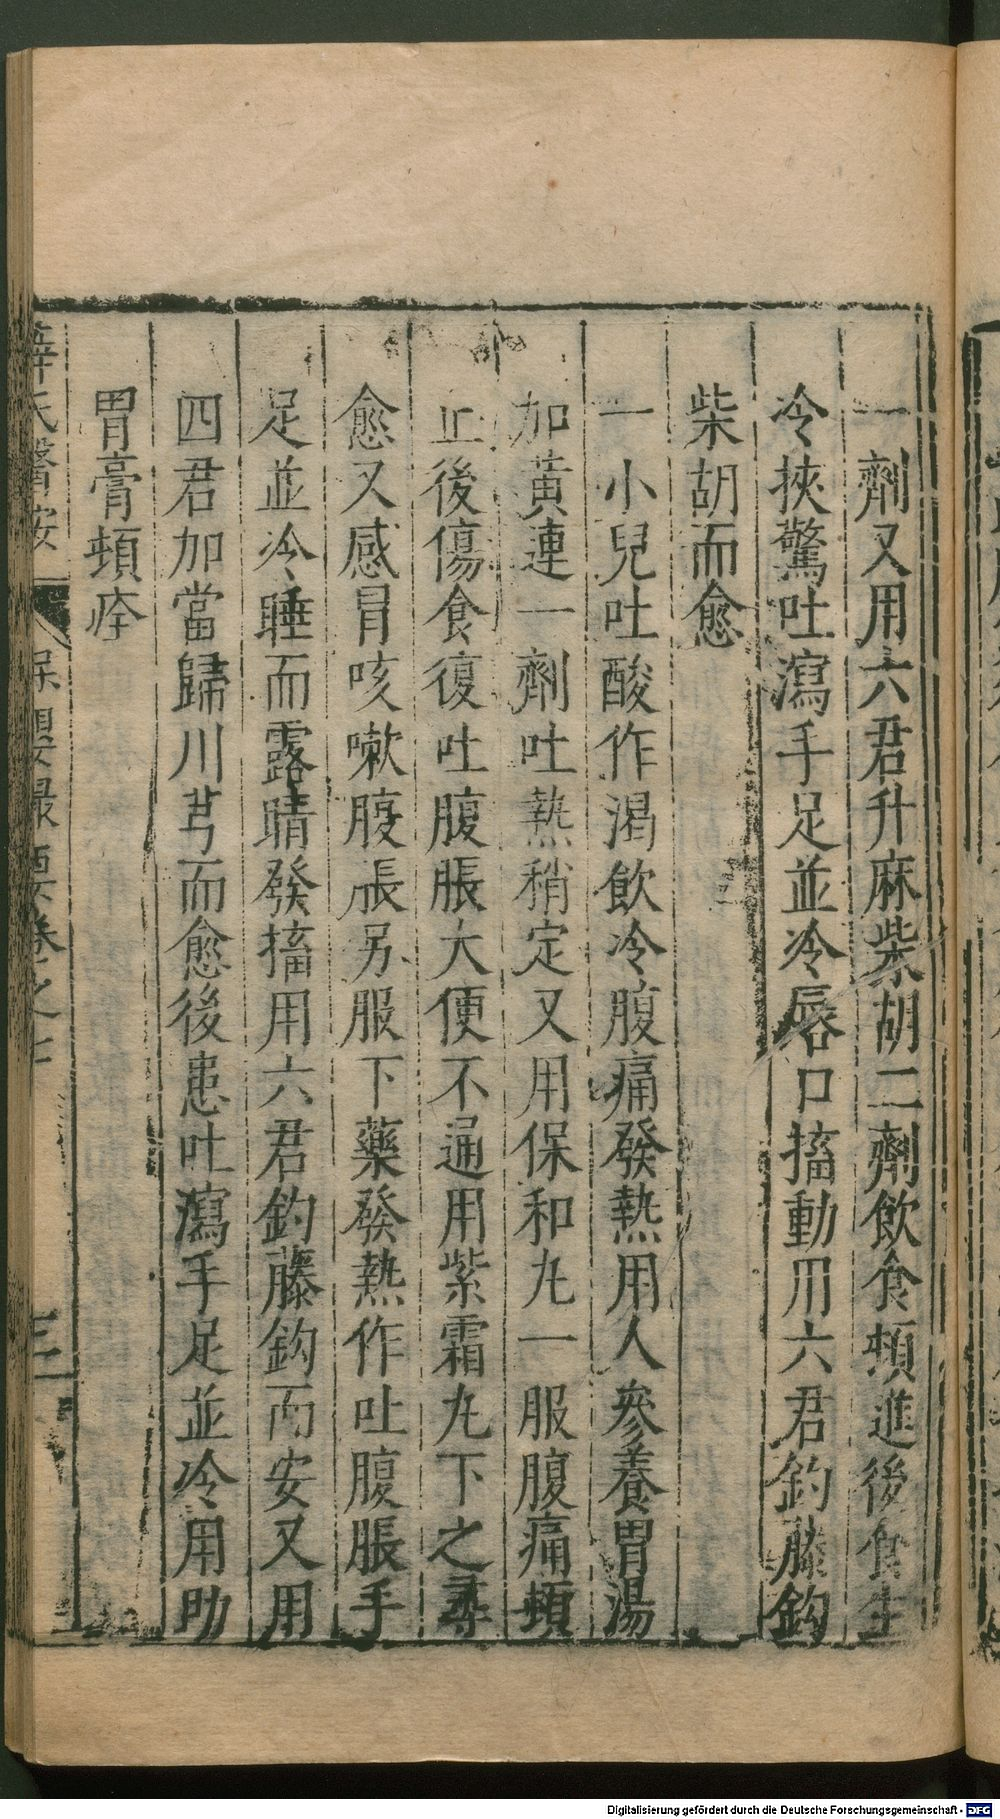 一劑又用六君升麻柴胡二劑飲食頓進後食生
冷挾驚吐瀉手足並冷唇口搐動用六君釣藤鈎
柴胡而愈
一小兒吐酸作渴飲冷腹痛發熱用人參養胃湯
加黃連一劑吐熱稍定又用保和丸一服腹痛頓
止後傷食復吐腹脹大便不通用紫霜丸下之尋
愈又感冒咳嗽腹脹另服下藥發熱作吐腹脹手
足並冷睡而露睛發搐用六君釣藤鈎而安又用
四君加當歸川芎而愈後患吐瀉手足並冷用助
胃膏頓痊
薛氏醫按 保嬰撮要卷之七 三
Digitalisierung gefördert durch die Deutsche Forschungsgemeinschaft - DFG